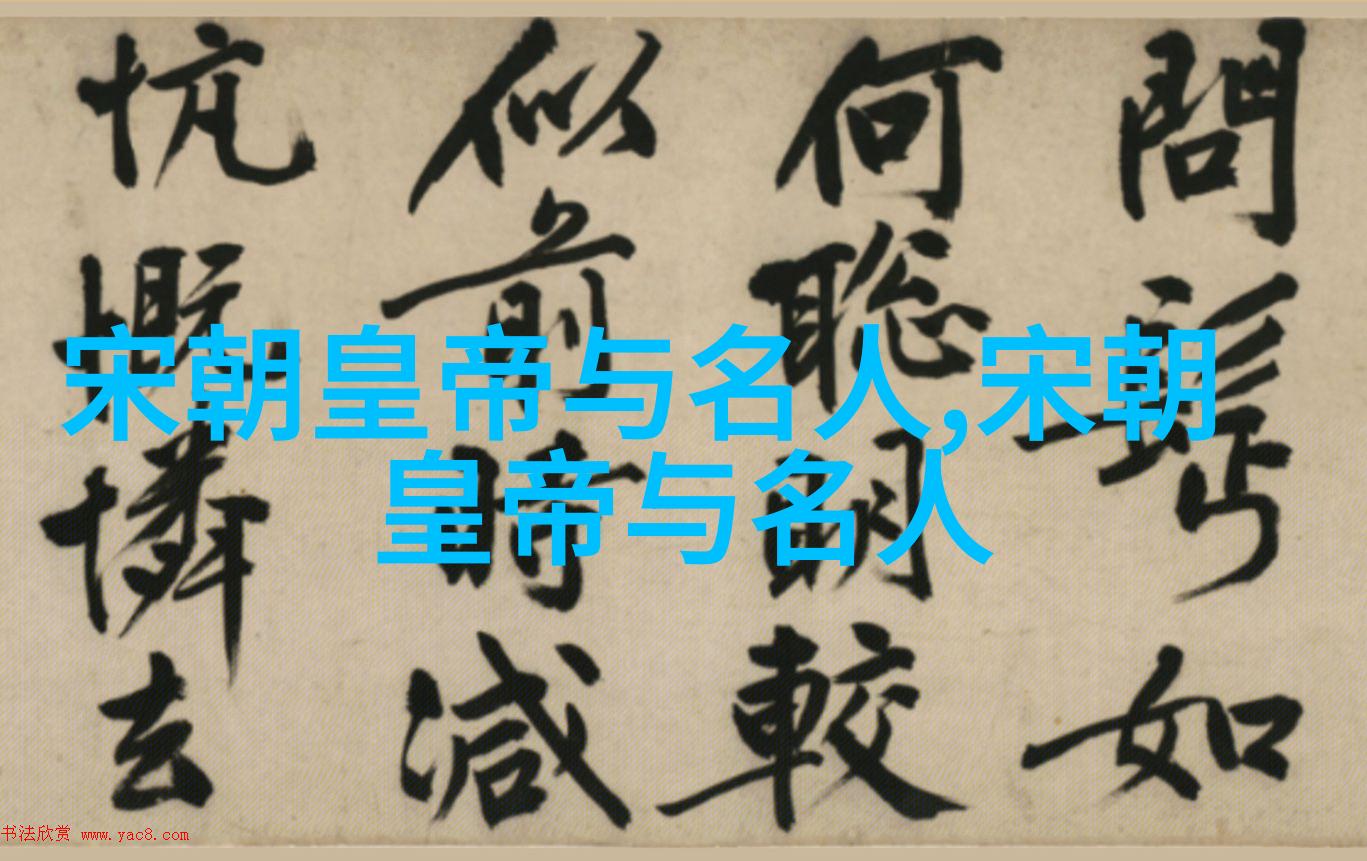 宋朝皇帝与名人,宋朝
皇帝与名人
問如
何聰明較
似前時減
忼慨憐去
书法欣赏 www.yac8.com